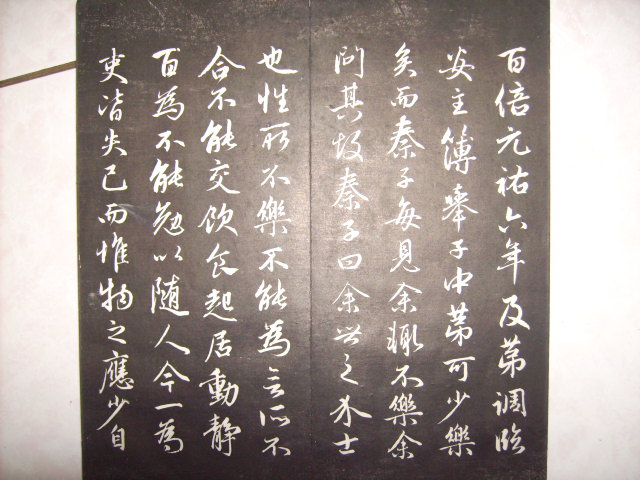 百倍元祐六年及苐調臨
安主簿舉子中苐可少樂
矣而秦子每見余輒不樂余
問其故秦子曰余世之介士
也性所不樂不能為言所不
合不能交飲食起居動静
百為不能勉以隨人今一為
吏皆失己而惟物之應少自